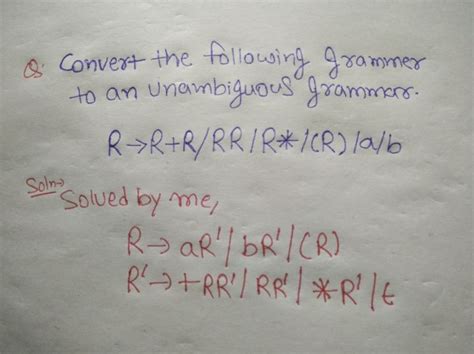 Q: Convert the following grammer
to an unambiguous grammars.
R→R+R/RR/R*/(R)/a/b
Soln→
Solved by me,
R→ aR'/bR'/(R)
R'→+RR'/RR'/*R'/t